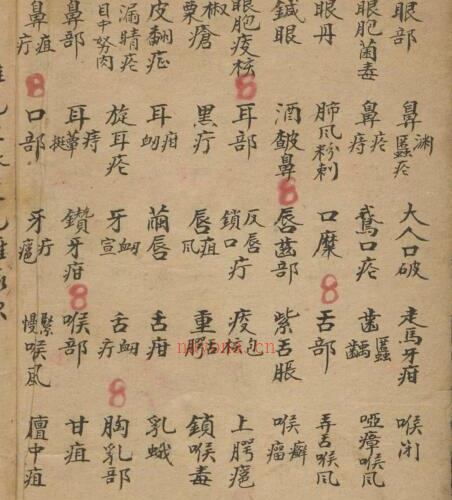 眼部 鼻淵䘌疮 大人口破 走馬牙疳 喉闭
眼胞菌毒 鼻疮痔 鵞口疮 齒䘌齲 啞瘴喉风
眼丹 肺风粉刺 口糜 舌部 弄舌喉风
鍼眼 酒皶鼻 唇齒部 紫舌脹 喉癬瘤
眼胞痰核 耳部 反唇鎖口疔 痰包核 上腭癰
椒粟瘡 黑疔 唇疽风 重腭舌 鎖喉毒
皮翻症 耳疳衂 繭唇 舌疳 乳蛾
漏睛疮目中努肉 旋耳疮 牙衂宣 舌衂疔 胸乳部
鼻部 耳痔蕈挺 鑽牙疳 喉部 甘疽
鼻疽疔 口部 牙疔癰 緊慢喉风 膻中疽
nayona.cn